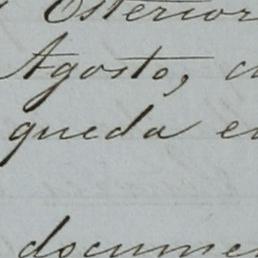 Esterior
Agosto,
queda en
docume